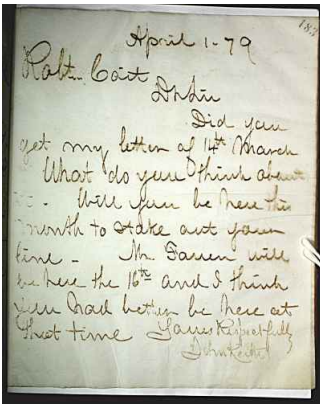 April 1-79
183
Robt. Coit
Dr Sir
Did you
get my letter of 14th March
What do you think about
it - Will you be here this
month to stake out your
line - Mr. will
be here the 16th and I think
you had better be here at
that time Yours Respectfully
John